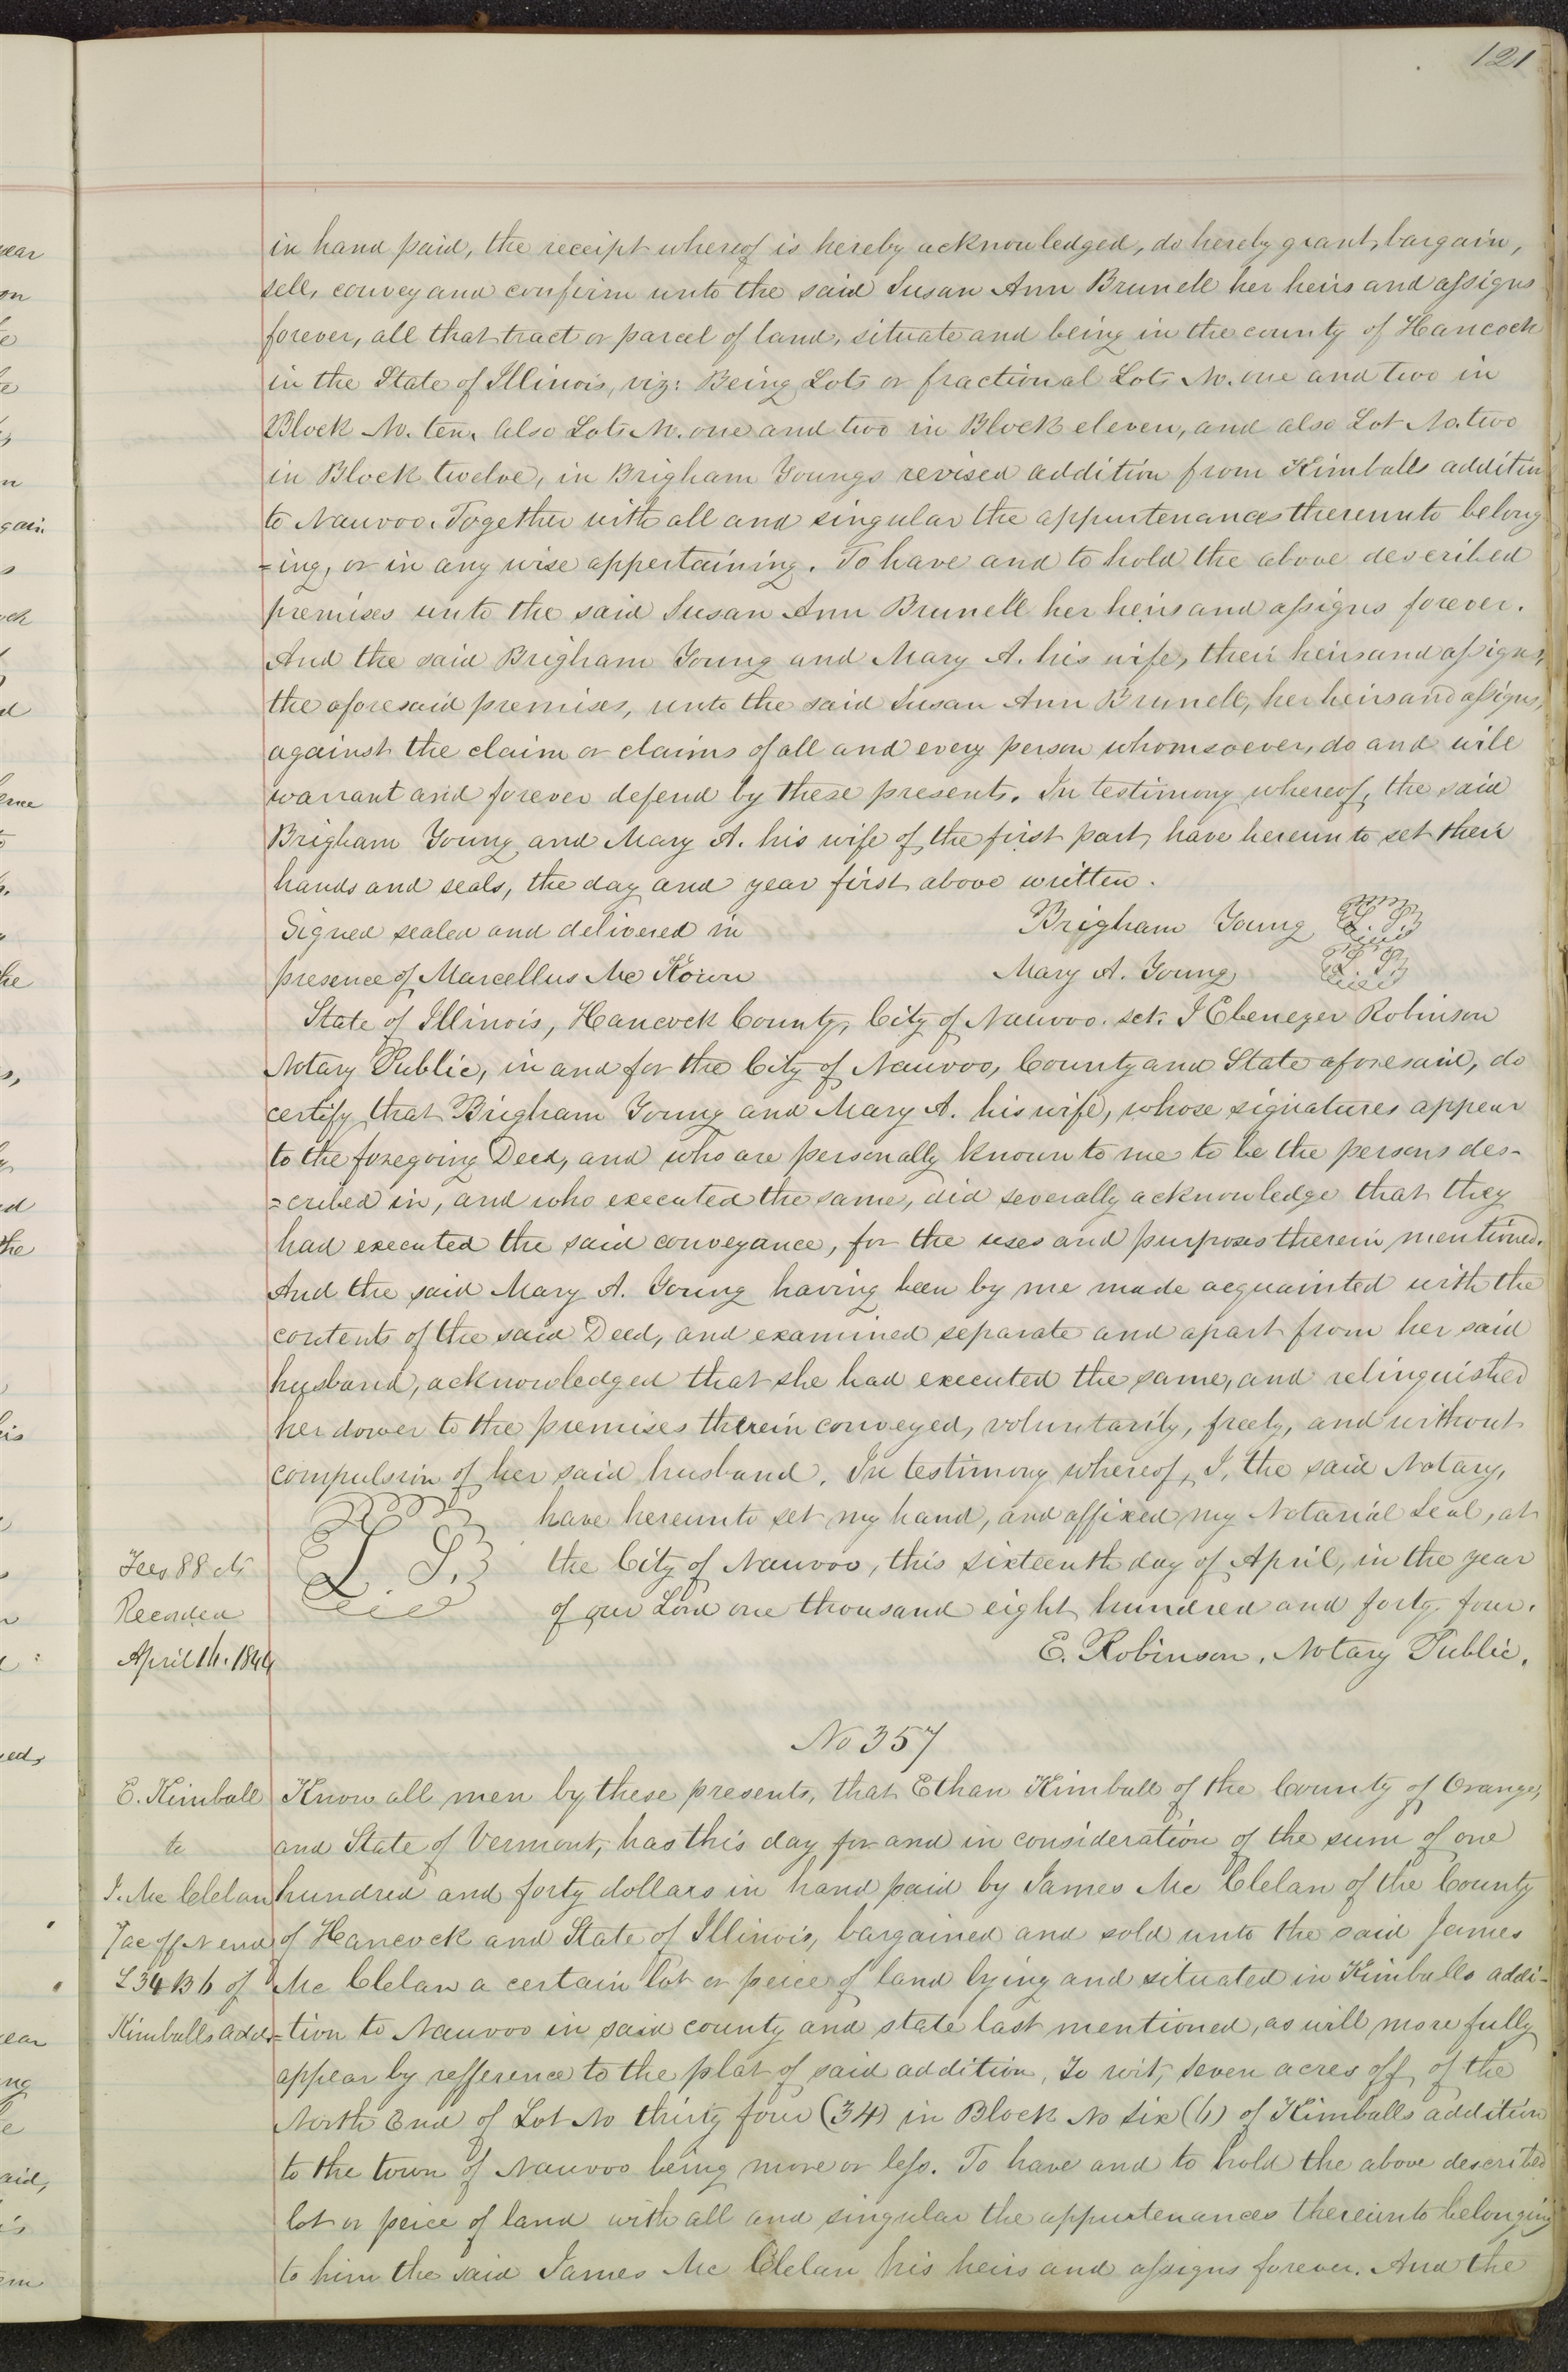 121
in hand paid, the receipt whereof is hereby acknowledged, do hereby grant, bargain,
sell, convey and confirm unto the said Susan Ann Brunell her heirs and assigns
forever, all that tract or parcel of land, situate and being in the county of Hancock
in the State of Illinois, viz: Being Lots or fractional Lots No. one and two in
Block No. ten. also Lots No. one and two in Block eleven, and also Lot No. two
in Block twelve, in Brigham Youngs revised addition from Kimballs addition
to Nauvoo. Together with all and singular the appurtenances thereunto belong
=ing, or in any wise appertaining. To have and to hold the above described
premises unto the said Susan Ann Brunell her heirs and assigns forever.
And the said Brigham Young and Mary A. his wife, their heirs and assigns,
the aforesaid premises, unto the said Susan Ann Brunell, her heirs and assigns,
against the claim or claims of all and every person whomsoever, do and will
warrant and forever defend by these presents. In testimony whereof, the said
Brigham Young and Mary A. his wife of the first part, have hereunto set their
hands and seals, the day and year first above written.
Signed sealed and delivered in Brigham Young L. S.
presence of Marcellus Mc Kown Mary A. Young L. S.
State of Illinois, Hancock County, City of Nauvoo. sct. I Ebenezer Robinson
Notary Public, in and for the City of Nauvoo, County and State aforesaid, do
certify that Brigham Young and Mary A. his wife, whose signatures appear
to the foregoing Deed, and who are personally known to me to be the persons des-
=cribed in, and who executed the same, did severally acknowledge that they
had executed the said conveyance, for the uses and purposes therein mentioned.
And the said Mary A. Young having been by me made acquainted with the
contents of the said Deed, and examined separate and apart from her said
husband, acknowledged that she had executed the same, and relinquished
her dower to the premises therein conveyed, voluntarily, freely, and without
compulsion of her said husband. In testimony whereof, I, the said Notary,
L. S. have hereunto set my hand, and affixed my Notarial Seal, at
Fees 88 cts the City of Nauvoo, this sixteenth day of April, in the year
Recorded of our Lord one thousand eight hundred and forty four.
April 16. 1844 E. Robinson, Notary Public.
No 357
E. Kimball Know all men by these presents, that Ethan Kimball of the County of Orange,
to and State of Vermont, has this day for and in consideration of the sum of one
J. Mc Clelan hundred and forty dollars in hand paid by James Mc Clelan of the County
7 ac off N end of Hancock and State of Illinois, bargained and sold unto the said James
L 34 B 6 of Mc Clelan a certain lot or peice of land lying and situated in Kimballs addi-
Kimballs add. =tion to Nauvoo in said county and state last mentioned, as will more fully
appear by refference to the plat of said addition, To wit, Seven acres off of the
North End of Lot No thirty four (34) in Block No Six (6) of Kimballs addition
to the town of Nauvoo being more or less. To have and to hold the above described
lot or peice of land with all and singular the appurtenances thereunto belonging
to him the said James Mc Clelan his heirs and assigns forever. And the